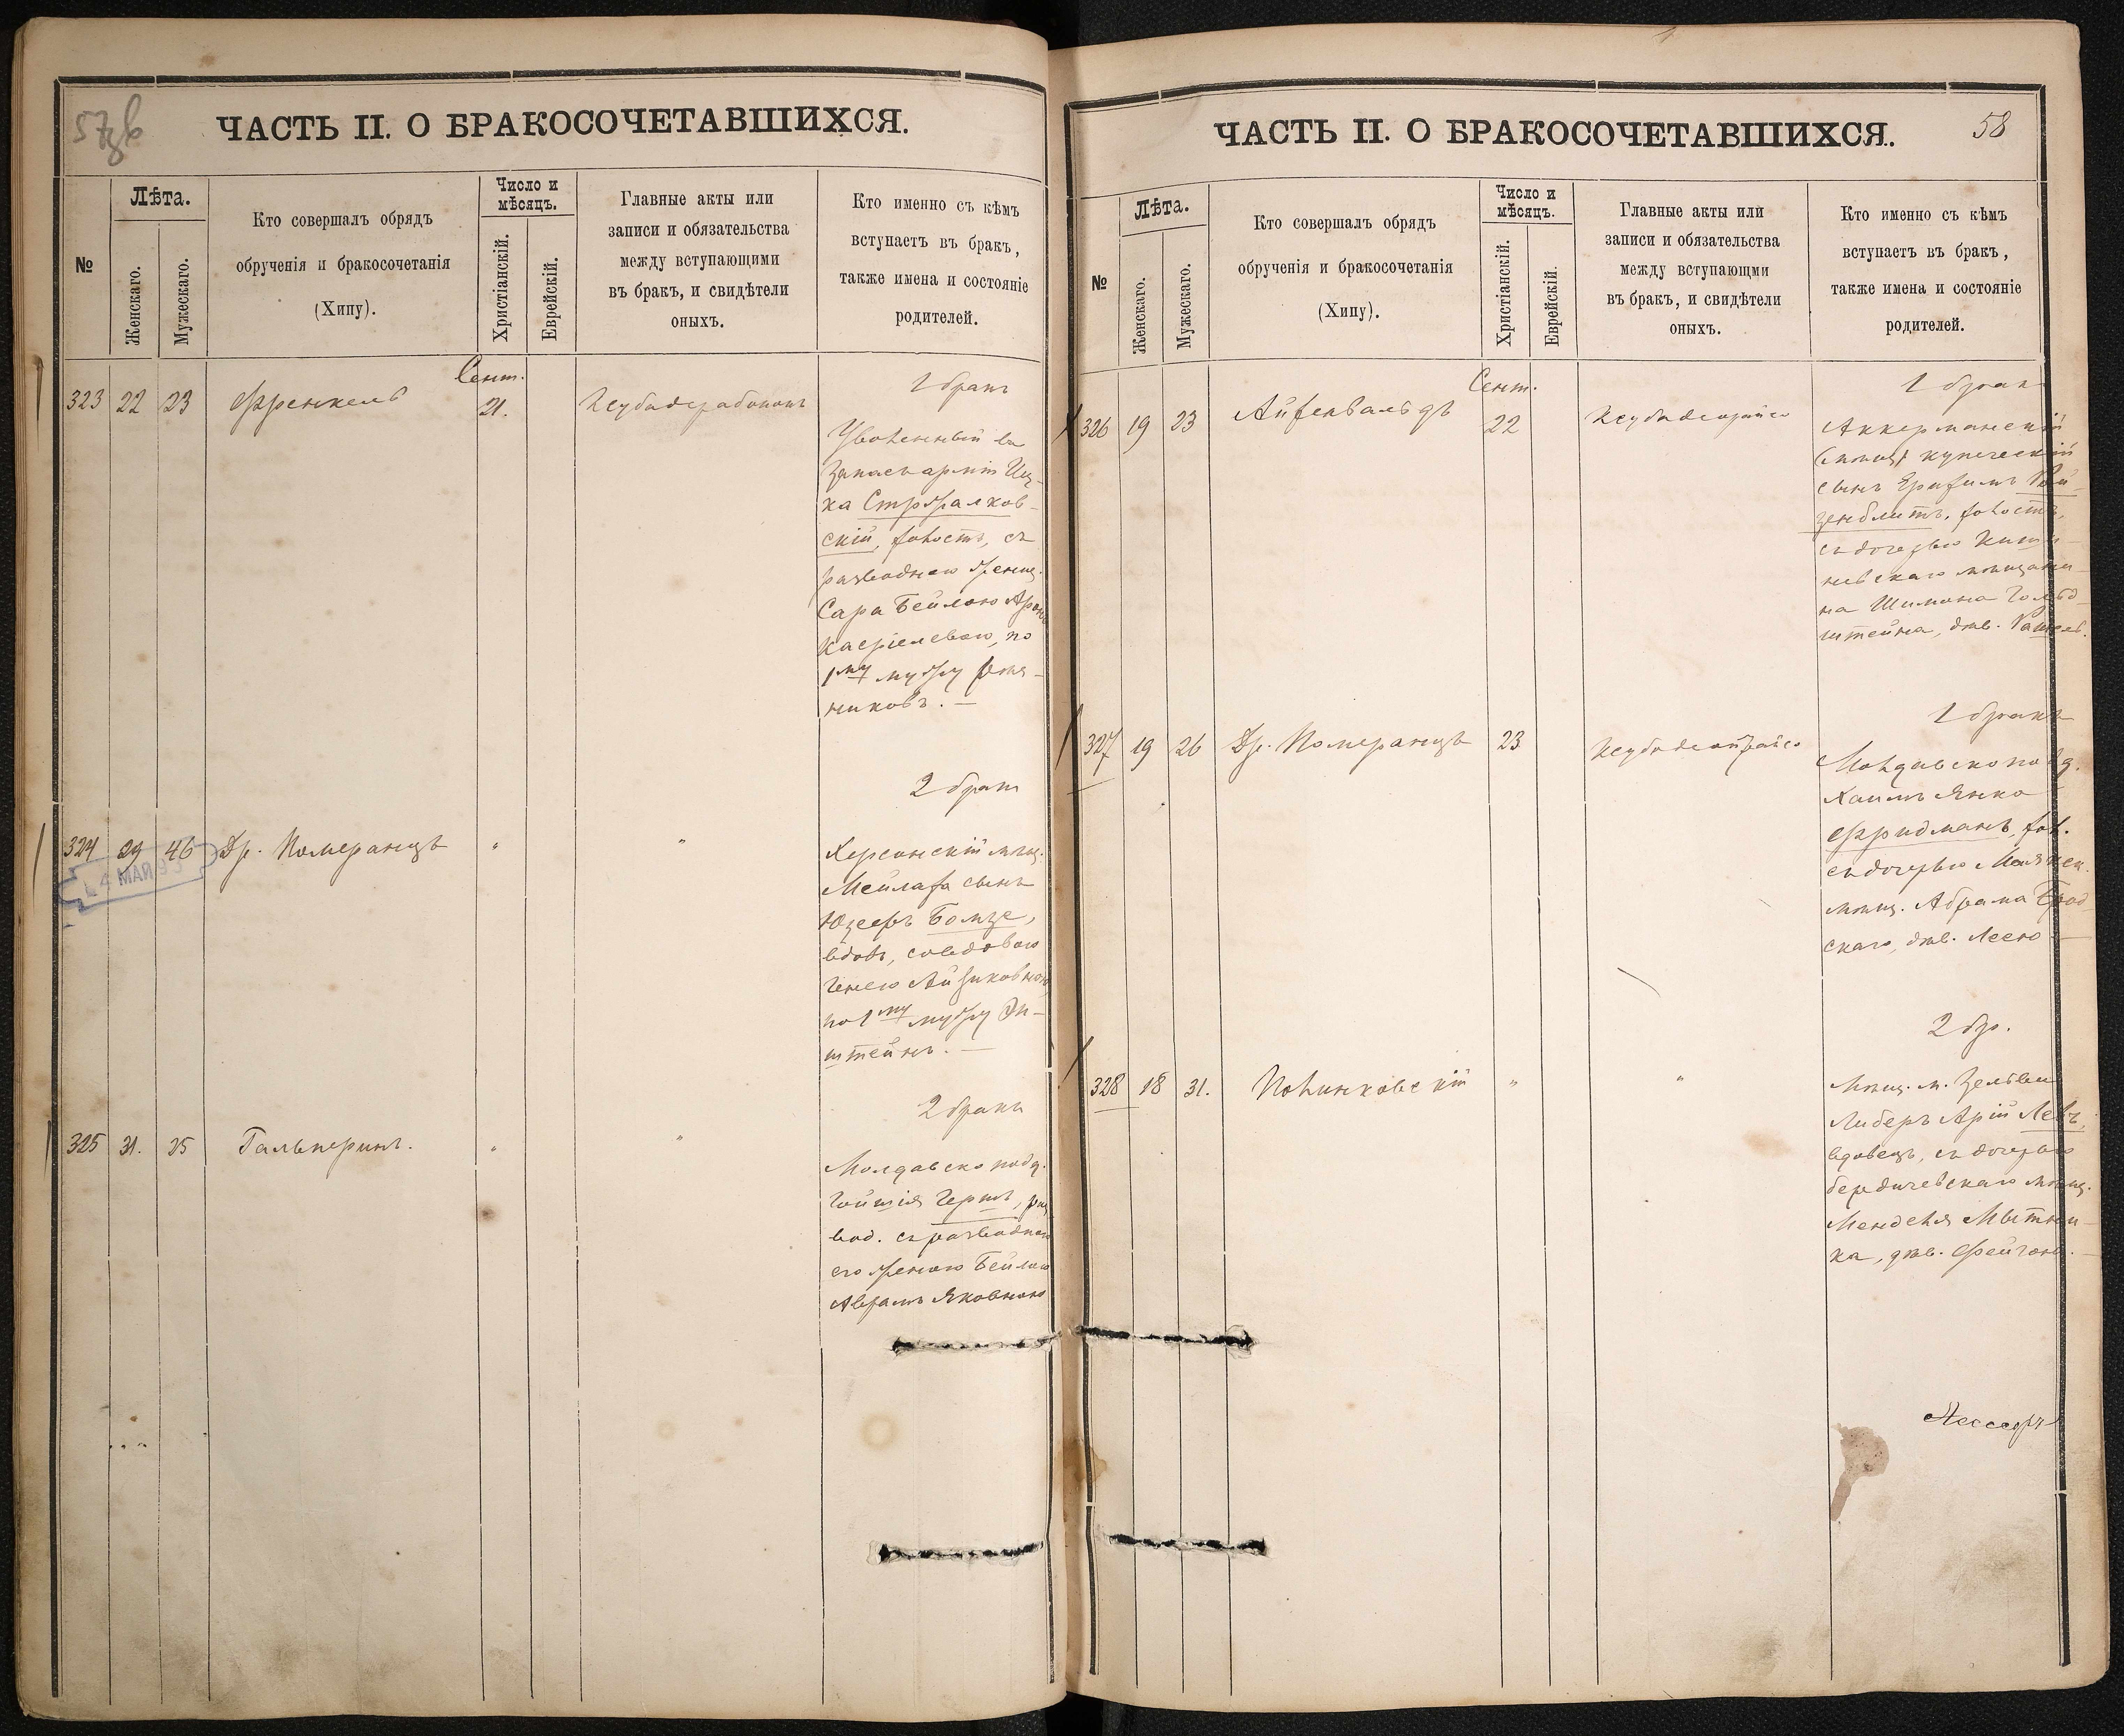 57 об
ЧАСТЬ II. О БРАКОСОЧЕТАВШИХСЯ.
№
Лѣта.
Женскаго.
Мужескаго.
Кто совершалъ обрядъ
обрученія и бракосочетанія
(Хипу).
Число и
мѣсяцъ.
Христіанскій.
Еврейскій.
Главные акты или
записи и обязательства
между вступающими
въ бракъ, и свидѣтели
оныхъ.
Кто именно съ кѣмъ
вступаетъ въ бракъ,
также имена и состояніе
родителей.
Сент.
323 22 23 Френкель 21.
1 бракъ
Уволенный въ
запасъ арміи Иц-
ка Стржалков-
скій, холостъ, съ
разводною женщ.
Сара Бейлою Арон
Касріелевою, по
1му мужу
никовъ. —
324 29 46 Др. Померанцъ " "
4 МАЙ 93
2 бракъ
Херсонскій мѣщ.
Мейлаха сынъ
Юзефъ Бомзе,
вдовъ, со вдовою
Генею Айзиковною,
по 1му мужу Эп-
штейнъ. —
325 31. 25 Гальперинъ. " "
2 бракъ
Молдавско подд.
Гойшія Гершъ, раз
вод. съ разводною
его женою Бейлою
Аврамъ Яковною
ЧАСТЬ II. О БРАКОСОЧЕТАВШИХСЯ.
58
№
Лѣта.
Женскаго.
Мужескаго.
Кто совершалъ обрядъ
обрученія и бракосочетанія
(Хипу).
Число и
мѣсяцъ.
Христіанскій.
Еврейскій.
Главные акты или
записи и обязательства
между вступающми
въ бракъ, и свидѣтели
оныхъ.
Кто именно съ кѣмъ
вступаетъ въ бракъ,
также имена и состояніе
родителей.
Сент.
326 19 23 Айхенвальдъ 22
1 брак
Аккерманскій
купеческій
сынъ Ерахилъ Вай
зенблитъ, холостъ,
съ дочерью Киши-
невскаго мѣщани-
на Шимона Гольд-
штейна, дѣв. Рашель.
327 19 26 Др. Померанцъ 23
1 бракъ
Молдавско подд.
Хаимъ Янко
Фридманъ, хол.
съ дочерью
мѣщ. Абрама Брод-
скаго, дѣв. Леею —
328 18 31. Полинковскій " "
2 бр.
Мѣщ. м. Зельвы
Либеръ Арій Левъ,
вдовецъ, съ дочерью
бердичевскаго мѣщ.
Менделя Мытни-
ка, дѣв. Фейгою. —